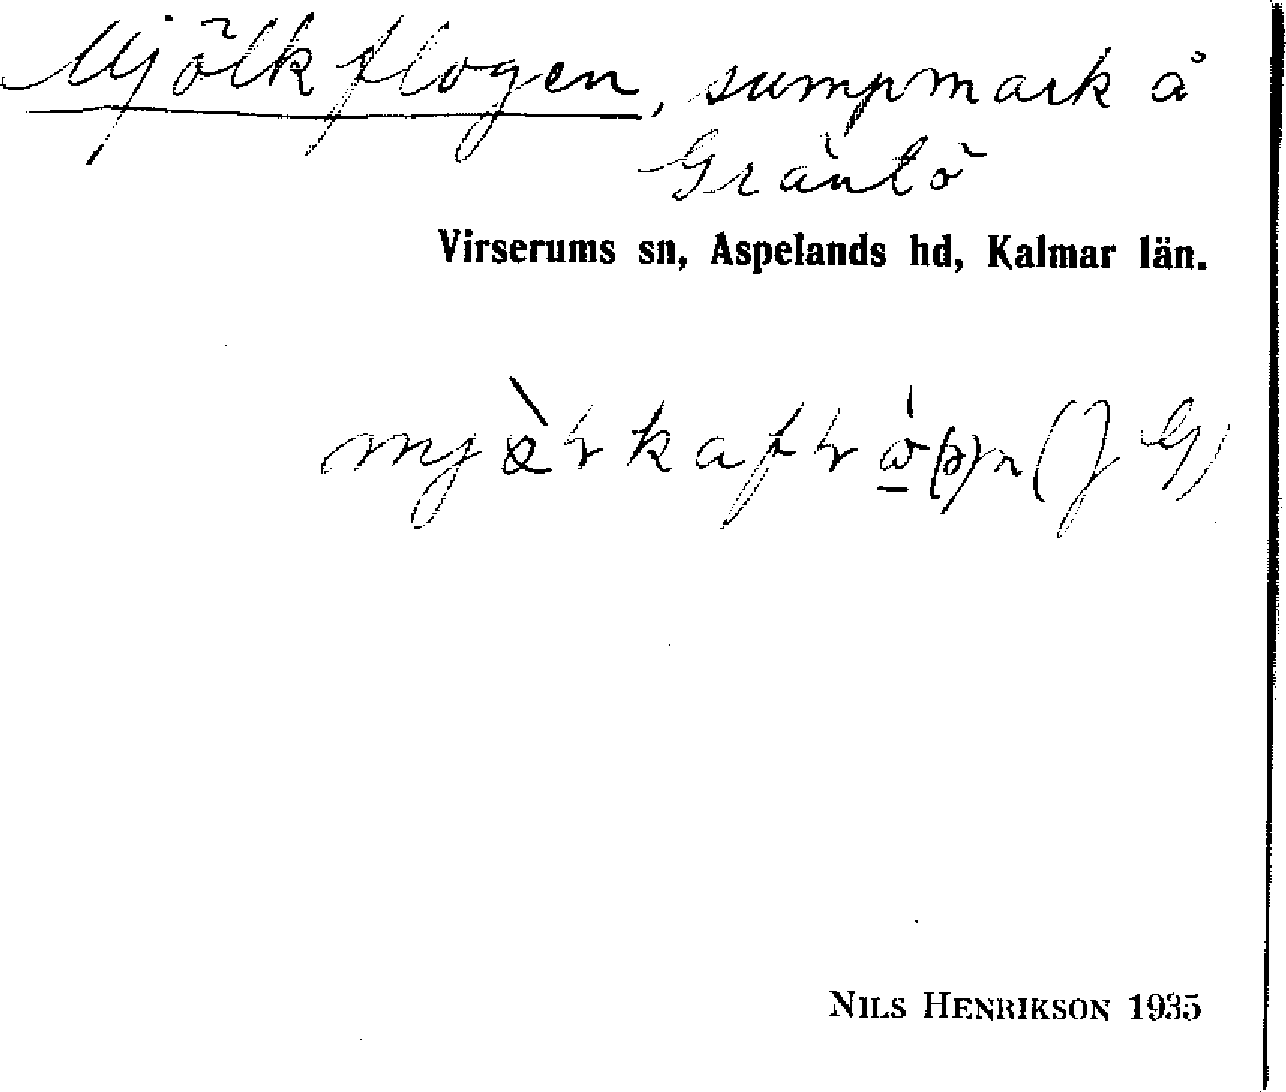 Mjölkflogen, sumpmark å
Gräntö
Virserums sn, Aspelands hd, Kalmar län.
(JG)
NILS HENRIKSON 1935